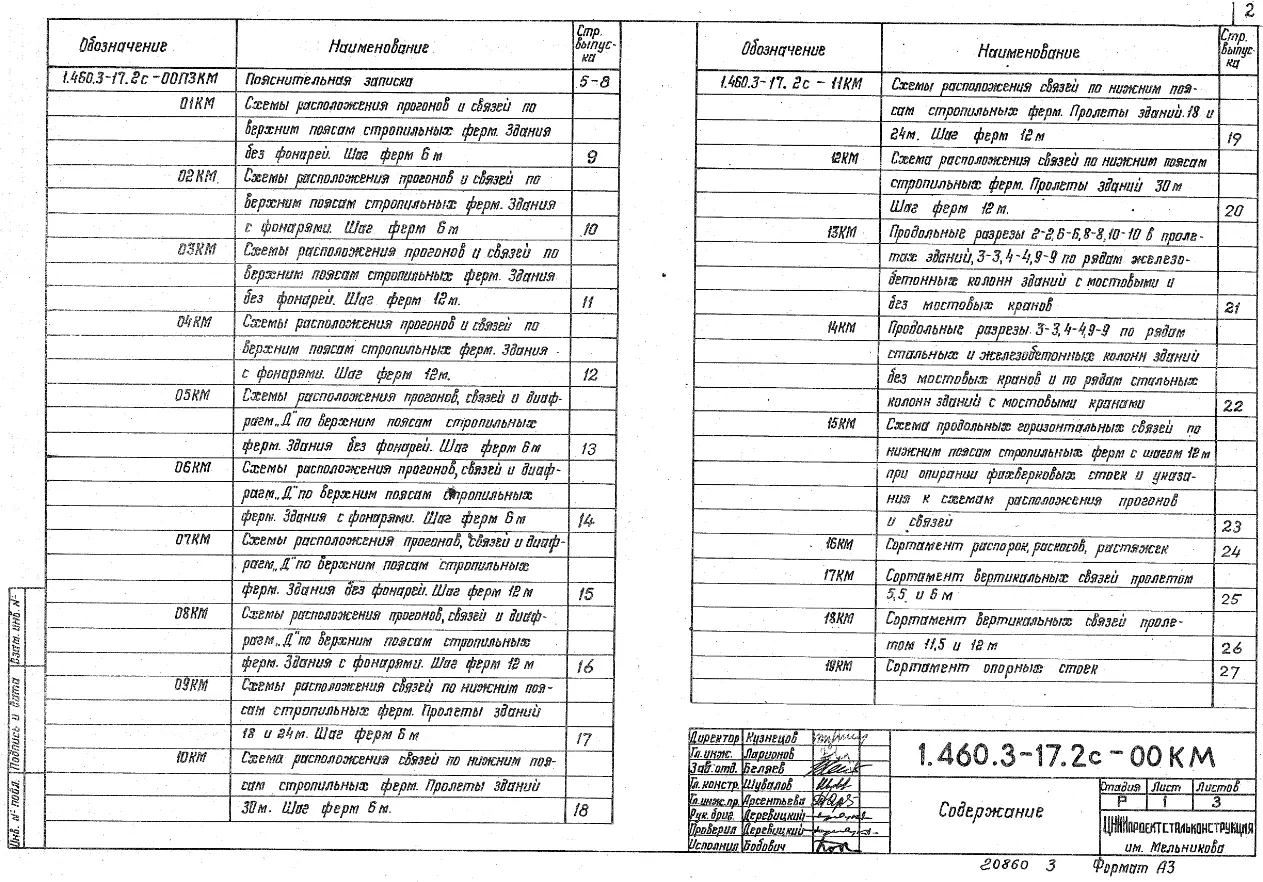 2
Обозначение Наименование Стр. выпуска
1.460.3-17.2с-00ПЗКМ Пояснительная записка 5-8
01КМ Схемы расположения прогонов и связей по
верхним поясам стропильных ферм. Здания
без фонарей. Шаг ферм 6 м 9
02КМ. Схемы расположения прогонов и связей по
верхним поясам стропильных ферм. Здания
с фонарями. Шаг ферм 6 м 10
03КМ Схемы расположения прогонов и связей по
верхним поясам стропильных ферм. Здания
без фонарей. Шаг ферм 12м. 11
04КМ Схемы расположения прогонов и связей по
верхним поясам стропильных ферм. Здания
с фонарями. Шаг ферм 12м. 12
05КМ Схемы расположения прогонов, связей и диаф-
рагм „Д" по верхним поясам стропильных
ферм. Здания без фонарей. Шаг ферм 6м 13
06КМ Схемы расположения прогонов, связей и диаф-
рагм „Д" по верхним поясам стропильных
ферм. Здания с фонарями. Шаг ферм 6 м 14
07КМ Схемы расположения прогонов, связей и диаф-
рагм „Д" по верхним поясам стропильных
ферм. Здания без фонарей. Шаг ферм 12 м 15
08КМ Схемы расположения прогонов, связей и диаф-
рагм „Д" по верхним поясам стропильных
ферм. Здания с фонарями. Шаг ферм 12 м 16
09КМ Схемы расположения связей по нижним поя-
сам стропильных ферм. Пролеты зданий
18 и 24м. Шаг ферм 6 м 17
10КМ Схема расположения связей по нижним поя-
сам стропильных ферм. Пролеты зданий
30м. Шаг ферм 6 м. 18
Обозначение Наименование Стр. выпуска
1.460.3-17.2с-11КМ Схемы расположения связей по нижним поя-
сам стропильных ферм. Пролеты зданий 18 и
24м. Шаг ферм 12 м 19
12КМ Схема расположения связей по нижним поясам
стропильных ферм. Пролеты зданий 30м
Шаг ферм 12 м. 20
13КМ Продольные разрезы 2-2,6-6,8-8,10-10 в проле-
тах зданий, 3-3,4-4,9-9 по рядам железо-
бетонных колонн зданий с мостовыми и
без мостовых кранов 21
14КМ Продольные разрезы 3-3,4-4,9-9 по рядам
стальных и железобетонных колонн зданий
без мостовых кранов и по рядам стальных
колонн зданий с мостовыми кранами 22
15КМ Схема продольных горизонтальных связей по
нижним поясам стропильных ферм с шагом 12м
при опирании фахверковых стоек и указа-
ния к схемам расположения прогонов
и связей 23
16КМ Сортамент распорок, раскосов, растяжек 24
17КМ Сортамент вертикальных связей пролетом
5,5 и 6 м 25
18КМ Сортамент вертикальных связей проле-
том 11,5 и 12 м 26
19КМ Сортамент опорных стоек 27
Директор Кузнецов
Гл.инж. Ларионов
Зав.отд. Беляев
Гл.констр. Шувалов
Гл.инж.пр. Арсентьева
Рук.бриг. Деревицкий
Проверил Деревицкий
Исполнил Бодович
1.460.3-17.2с-00КМ
Содержание
Стадия Лист Листов
Р 1 3
ЦНИИпроектстальконструкция
им. Мельникова
20860 3 Формат А3
Инв. № подл. Подпись и дата Взам. инв. №